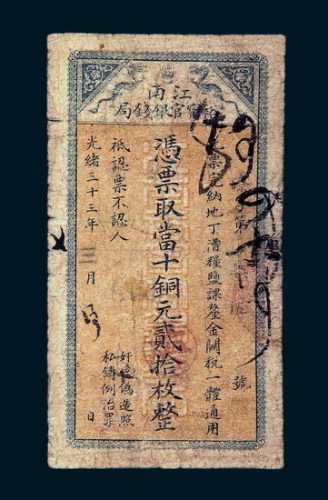 江南
裕甯官銀錢局
票完納地丁漕糧鹽課釐金關稅一體通用
第
號
憑票取當十銅元貳拾枚整
祗認票不認人
奸徒偽造照
私鑄例治罪
光緒三十三年 月 日